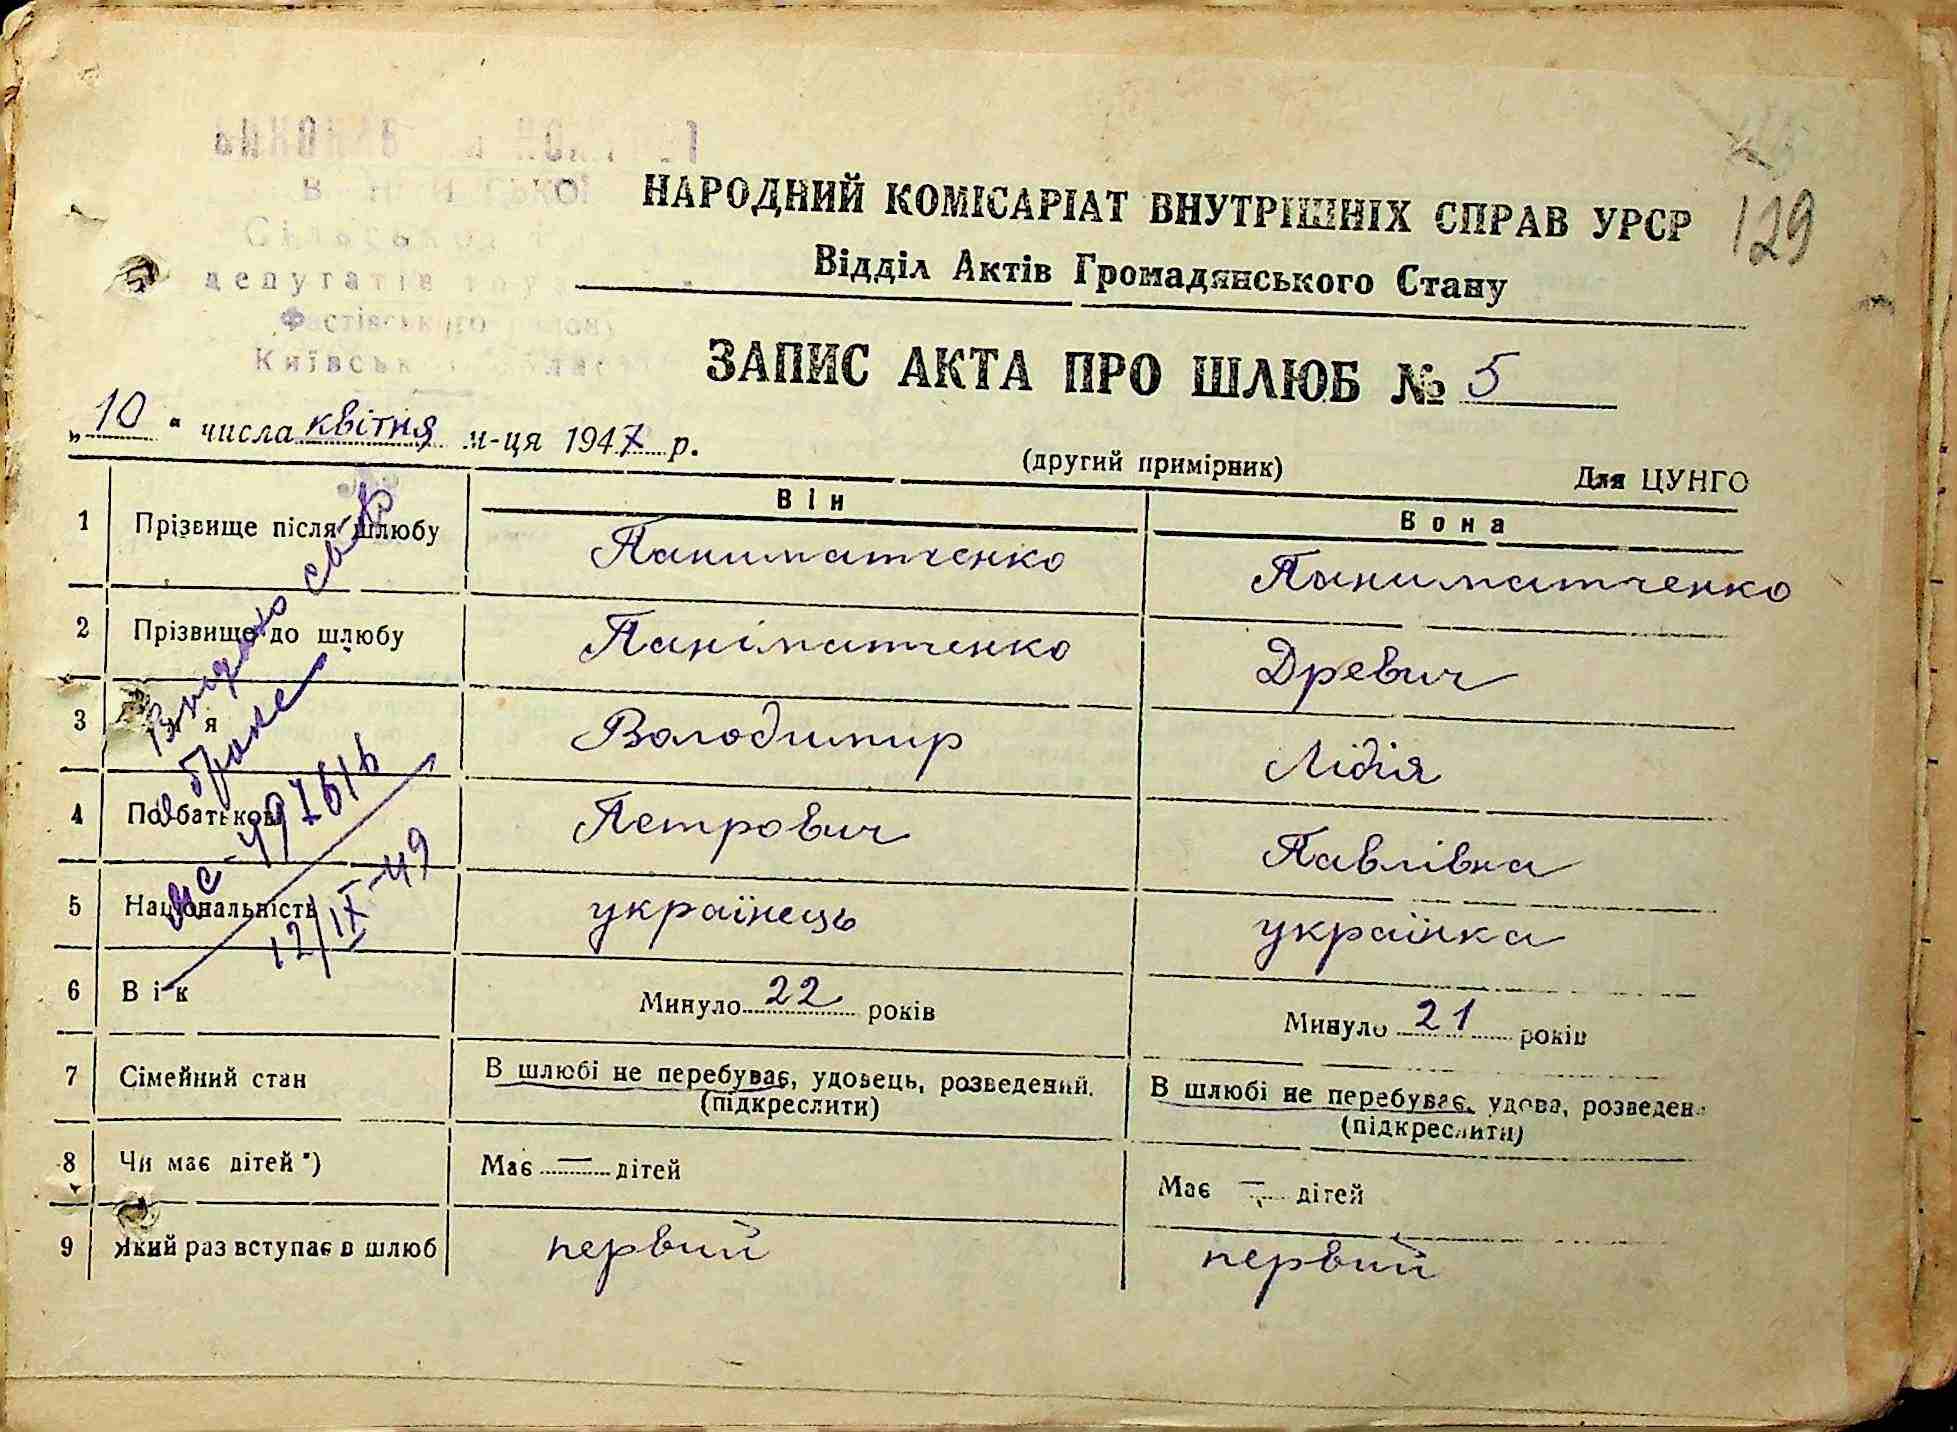 депутатів
Київськ
НАРОДНИЙ КОМІСАРІАТ ВНУТРІШНІХ СПРАВ УРСР
129
Відділ Актів Громадянського Стану
ЗАПИС АКТА ПРО ШЛЮБ № 5
„10“ числа квітня м-ця 1947 р.
(другий примірник) Для ЦУНГО
Він Вона
1 Прізвище після шлюбу Паниматченко Паниматченко
2 Прізвище до шлюбу Паніматченко Древич
3 я Володимир Лідія
4 По батькові Петрович Павлівна
5 Національність українець українка
6 Вік Минуло 22 років Минуло 21 років
7 Сімейний стан В шлюбі не перебуває, удовець, розведений. В шлюбі не перебуває, удова, розведен
(підкреслити) (підкреслити)
8 Чи має дітей *) Має — дітей Має — дітей
9 Який раз вступає в шлюб первий первий
Видано св-во
о браке
497616
12/IX-49